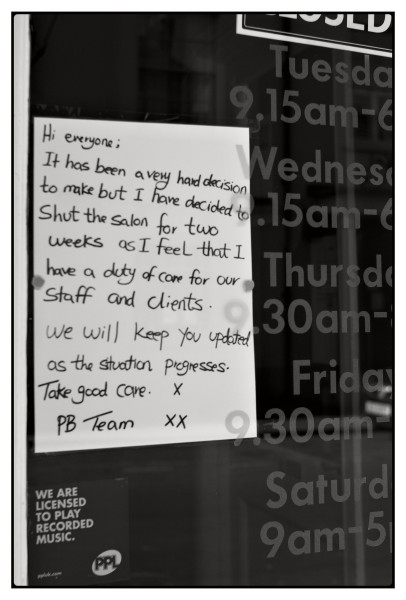 CLOSED
Tuesda
9.15am-6
Wednes
9.15am-6
Thursd
9.30am-
Friday
9.30am-
Saturd
9am-5p
Hi everyone;
It has been a very hard decision
to make but I have decided to
Shut the salon for two
weeks as I feel that I
have a duty of care for our
Staff and clients.
we will keep you updated
as the situation progresses.
Take good care. x
PB Team xx
WE ARE
LICENSED
TO PLAY
RECORDED
MUSIC.
PPL